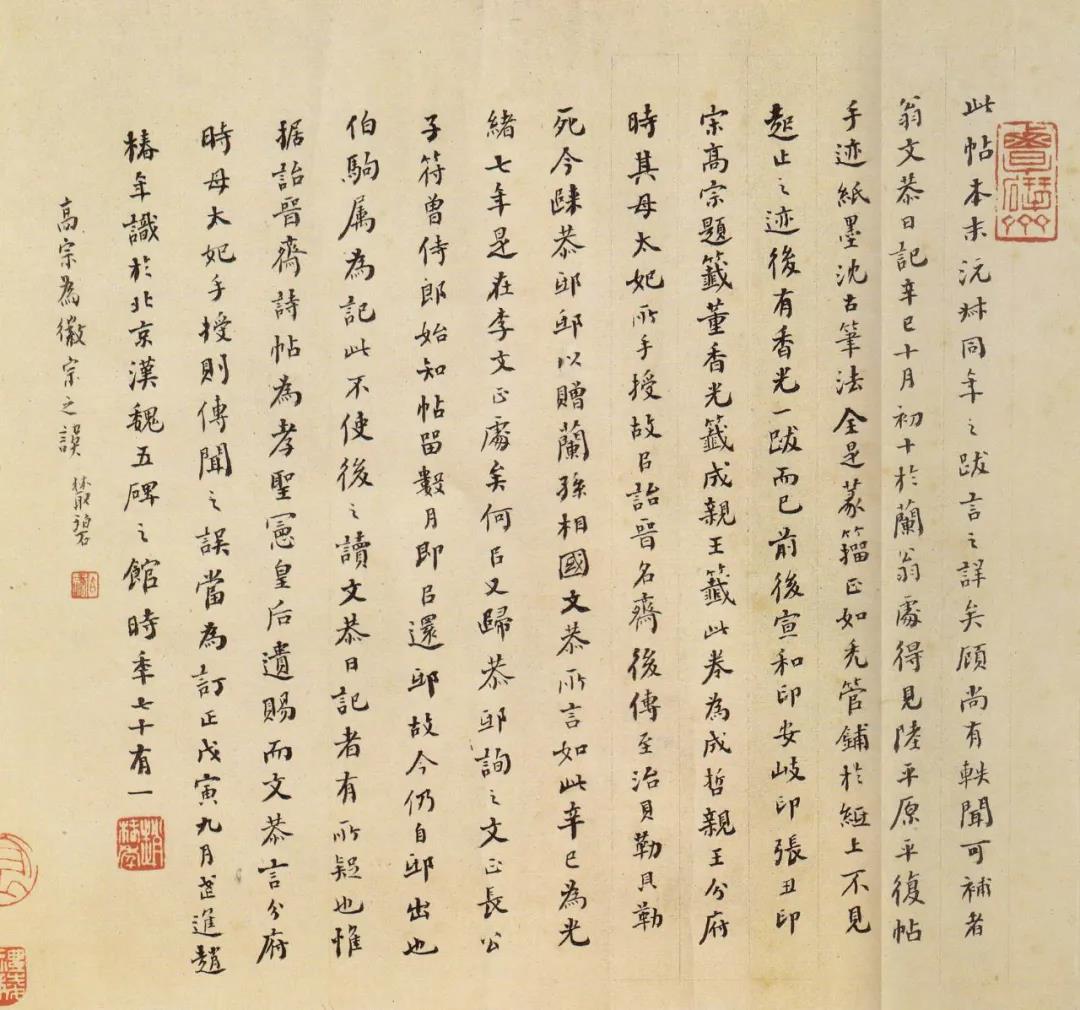 此帖本末沅叔同年之跋言之詳矣顧尚有軼聞可補者
翁文恭日記辛巳十月初十於蘭翁處得見陸平原平復帖
手迹紙墨沈古筆法全是篆籀正如禿管鋪於紙上不見
起止之迹後有香光一跋而已前後宣和印安岐印張丑印
宗高宗題籤董香光籤成親王籤此卷為成哲親王分府
時其母太妃所手授故㠯詒晉名齋後傳至治貝勒貝勒
死今歸恭邸邸以贈蘭孫相國文恭所言如此辛巳為光
緒七年是在李文正處矣何㠯又歸恭邸詢之文正長公
子符曾侍郎始知帖留數月即㠯還邸故今仍自邸出也
伯駒屬為記此不使後之讀文恭日記者有所疑也惟
据詒晉齋詩帖為孝聖憲皇后遺賜而文恭言分府
時母太妃手授則傳聞之誤當為訂正戊寅九月武進趙
椿年識於北京漢魏五碑之館時年七十有一
高宗為徽宗之誤
趙椿年